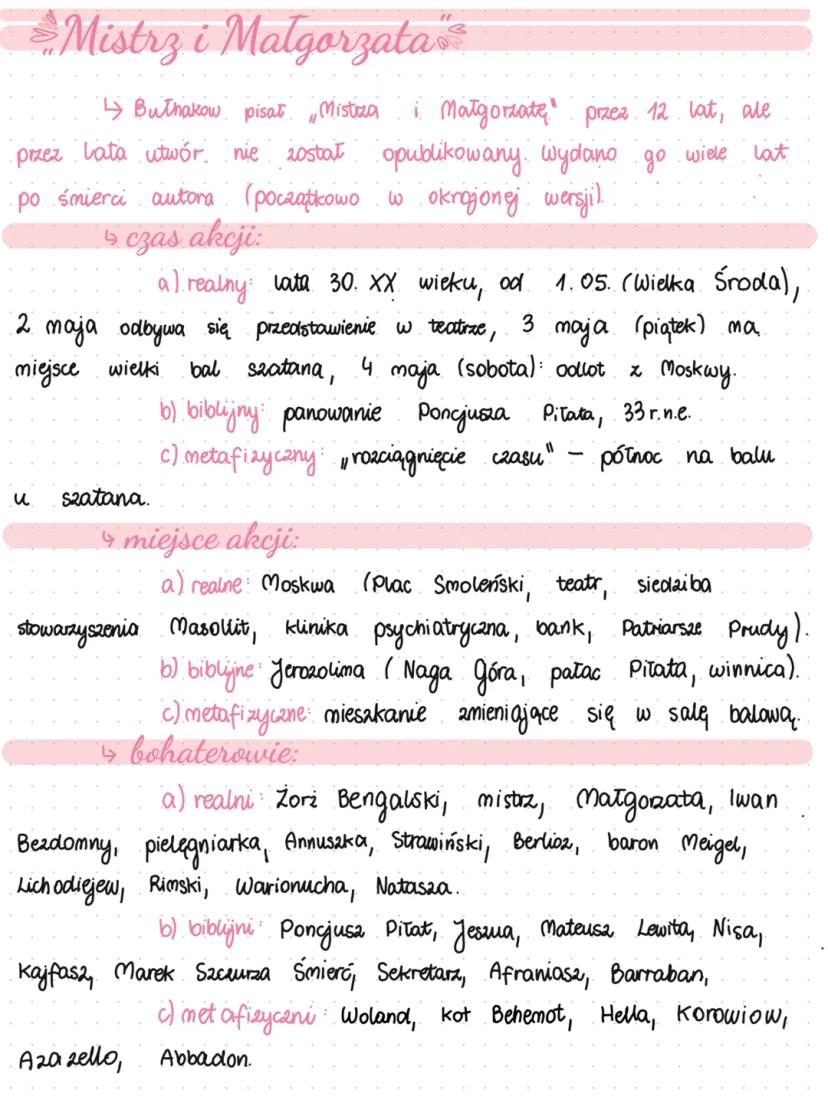 „Mistrz i Małgorzata"
↳ Bułhakow pisał „Mistrza i Małgorzatę" przez 12 lat, ale
przez lata utwór nie został opublikowany. Wydano go wiele lat
po śmierci autora (początkowo w okrojonej wersji).
↳ czas akcji:
a) realny: lata 30. XX wieku, od 1.05. (Wielka Środa),
2 maja odbywa się przedstawienie w teatrze, 3 maja (piątek) ma
miejsce wielki bal szatana, 4 maja (sobota): odlot z Moskwy.
b) biblijny: panowanie Poncjusza Piłata, 33 r.n.e.
c) metafizyczny: „rozciągnięcie czasu" – północ na balu
u szatana.
↳ miejsce akcji:
a) realne: Moskwa (Plac Smoleński, teatr, siedziba
stowarzyszenia Masollit, klinika psychiatryczna, bank, Patriarsze Prudy).
b) biblijne: Jerozolima (Naga Góra, pałac Piłata, winnica).
c) metafizyczne: mieszkanie zmieniające się w salę balową.
↳ bohaterowie:
a) realni: Żorż Bengalski, mistrz, Małgorzata, Iwan
Bezdomny, pielęgniarka, Annuszka, Strawiński, Berlioz, baron Meigel,
Lichodiejew, Rimski, Warionucha, Natasza.
b) biblijni: Poncjusz Piłat, Jeszua, Mateusz Lewita, Nisa,
Kajfasz, Marek Szczurza Śmierć, Sekretarz, Afraniasz, Barraban,
c) metafizyczni: Woland, kot Behemot, Hella, Korowiow,
Azazello, Abbadon.